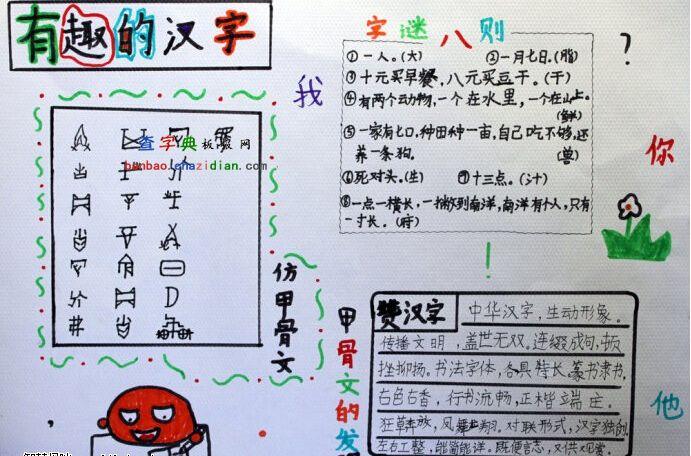 有趣的汉字
字谜八则
①一人。(大) ②一月七日。(脂)
③十元买早餐，八元买豆干。(干)
④有两个动物，一个在水里，一个在山上。
(鲜)
⑤一家有七口，种田种一亩，自己吃不够，还
养一条狗。
(兽)
⑥死对头。(生) ⑦十三点。(汁)
⑧一点一横长，一撇到南洋，南洋有个人，只有
一寸长。(府)
?
我
你
他
!
查字典板报网
banbao.chazidian.com
仿甲骨文
甲骨文的发
赞汉字
中华汉字，生动形象。
传播文明，盖世无双。连缀成句，
挫抑扬。书法字体，各具特长。篆书隶书，
古色古香，行书流畅，正楷端庄。
狂草奔放，风 翔。对联形式，汉字独创
左右工整，能简能详。既便言志，又供观赏。